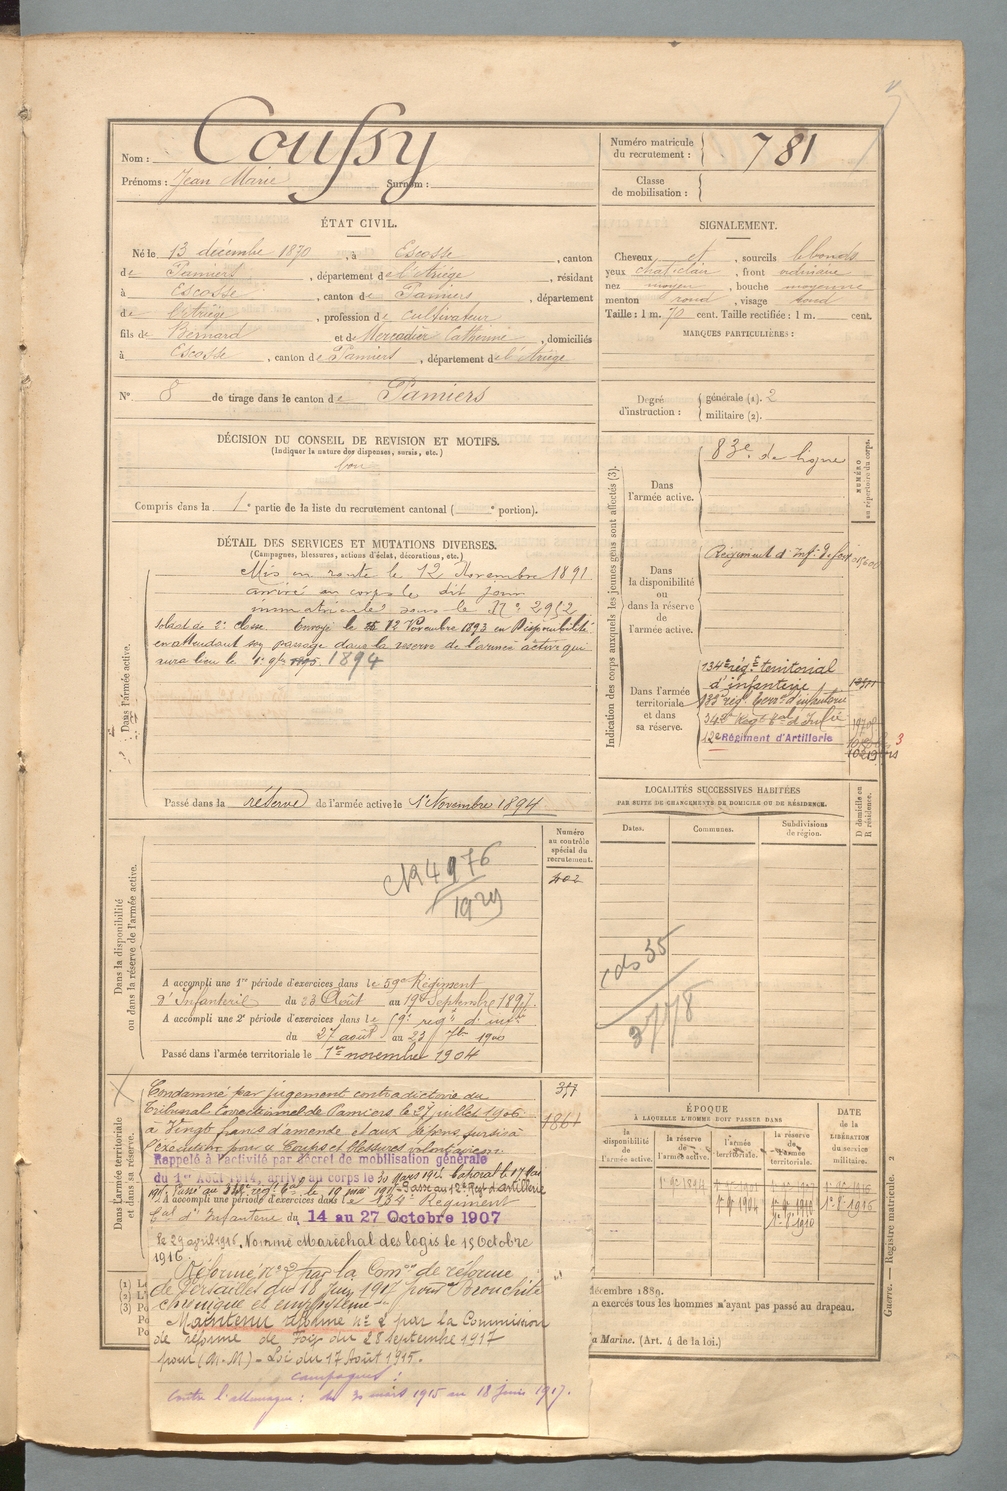 Nom : Coussy
Prénoms : Jean Marie Surnom :
Numéro matricule du recrutement : 781
Classe de mobilisation :
ÉTAT CIVIL.
Né le 13 décembre 1870, à Escosse, canton
de Pamiers, département de l'Ariège, résidant
à Escosse, canton de Pamiers, département
de l'Ariège, profession de cultivateur
fils de Bernard et de Mercadier Catherine, domiciliés
à Escosse, canton de Pamiers, département de l'Ariège
N° 8 de tirage dans le canton de Pamiers
SIGNALEMENT.
Cheveux et, sourcils blonds
yeux chat. clair, front ordinaire
nez moyen, bouche moyenne
menton rond, visage rond
Taille : 1 m. 70 cent. Taille rectifiée : 1 m. cent.
MARQUES PARTICULIÈRES :
Degré d'instruction : générale (1). 2
militaire (2).
DÉCISION DU CONSEIL DE REVISION ET MOTIFS.
(Indiquer la nature des dispenses, sursis, etc.)
bon
Compris dans la 1e partie de la liste du recrutement cantonal ( e portion).
DÉTAIL DES SERVICES ET MUTATIONS DIVERSES.
(Campagnes, blessures, actions d'éclat, décorations, etc.)
Dans l'armée active.
Mis en route le 12 Novembre 1891
arrivé au corps le dit jour
immatriculé sous le N° 2952
Soldat de 2e classe. Envoyé le 12 Novembre 1893 en Disponibilité
en attendant son passage dans la réserve de l'armée active qui
aura lieu le 1er 9bre 1895 1894
Passé dans la réserve de l'armée active le 1er Novembre 1894
Indication des corps auxquels les jeunes gens sont affectés (3).
NUMÉRO au répertoire du corps.
Dans l'armée active.
83e de ligne
Dans la disponibilité ou dans la réserve de l'armée active.
Régiment d'Inf. de Foix
Dans l'armée territoriale et dans sa réserve.
134e rég. territorial
d'infanterie
133e rég. terr. d'infanterie
34e Regt d'Infie
12e Régiment d'Artillerie
LOCALITÉS SUCCESSIVES HABITÉES
PAR SUITE DE CHANGEMENTS DE DOMICILE OU DE RÉSIDENCE.
Dates. Communes. Subdivisions de région.
D domicile ou R résidence.
Dans la disponibilité ou dans la réserve de l'armée active.
Numéro au contrôle spécial du recrutement.
402
4976
1929
A accompli une 1re période d'exercices dans le 59e Régiment
d'Infanterie du 23 Août au 19 Septembre 1897.
A accompli une 2e période d'exercices dans le 59e régt d'infie
du 27 août au 23 7bre 1900
Passé dans l'armée territoriale le 1er novembre 1904
35
3778
Dans l'armée territoriale et dans sa réserve.
357
1861
Condamné par jugement contradictoire du
Tribunal Correctionnel de Pamiers le 27 juillet 1906
à Vingt francs d'amende et aux dépens, sursis à
l'exécution pour : Coups et blessures volontaires
Rappelé à l'activité par décret de mobilisation générale
du 1er Août 1914, arrivé au corps le 30 mars 1915.
Passé au 12e Regt d'artillerie
A accompli une période d'exercices dans le 134e Régiment
d'Infanterie du 14 au 27 Octobre 1907
le 29 avril 1916. Nommé Maréchal des logis le 15 Octobre
1916
Réformé n° 2 par la Comon de réforme
de Versailles du 18 Juin 1917 pour Bronchite
chronique et emphysème
Maintenu réforme n° 2 par la Commission
de réforme de Foix du 28 septembre 1917
pour (M.M.) - Loi du 17 Août 1915.
Campagnes :
Contre l'Allemagne : du 30 mars 1915 au 18 juin 1917.
ÉPOQUE
À LAQUELLE L'HOMME DOIT PASSER DANS
la disponibilité de l'armée active. la réserve de l'armée active. l'armée territoriale. la réserve de l'armée territoriale.
DATE de la LIBÉRATION du service militaire.
décembre 1889.
n exercés tous les hommes n'ayant pas passé au drapeau.
a Marine. (Art. 4 de la loi.)
(1)
(2)
(3)
Guerre. — Registre matricule. 2